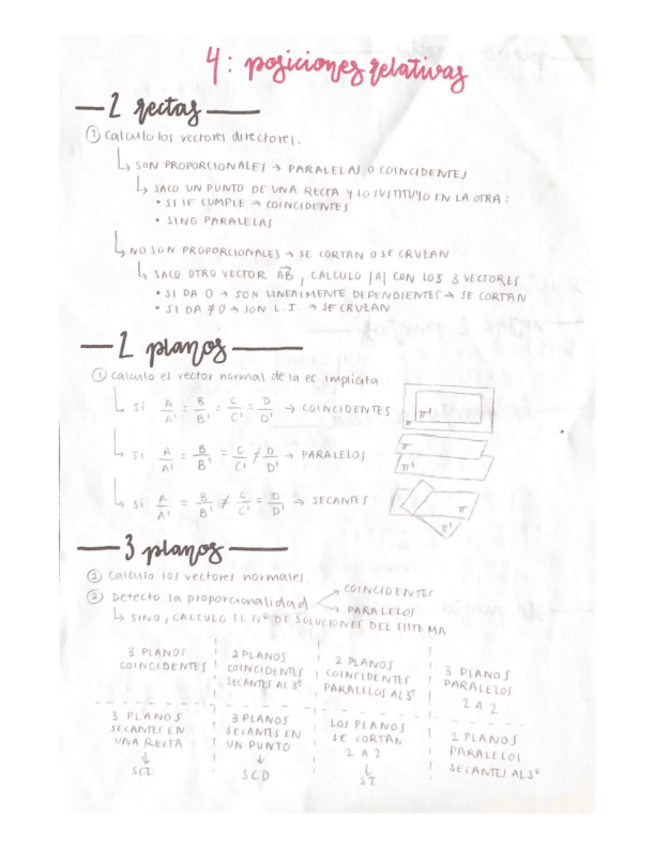 4: posiciones relativas
— 2 rectas —
① Calculo los vectores directores.
↳ SON PROPORCIONALES → PARALELAS O COINCIDENTES
↳ SACO UN PUNTO DE UNA RECTA Y LO SUSTITUYO EN LA OTRA:
• SI SE CUMPLE → COINCIDENTES
• SINO PARALELAS
↳ NO SON PROPORCIONALES → SE CORTAN O SE CRUZAN
↳ SACO OTRO VECTOR AB, CALCULO |A| CON LOS 3 VECTORES
• SI DA 0 → SON LINEALMENTE DEPENDIENTES → SE CORTAN
• SI DA ≠ 0 → SON L.I. → SE CRUZAN
— 2 planos —
① Calculo el vector normal de la ec implícita
↳ si A/A' = B/B' = C/C' = D/D' → COINCIDENTES
π π'
↳ si A/A' = B/B' = C/C' ≠ D/D' → PARALELOS
π π'
↳ si A/A' = B/B' ≠ C/C' = D/D' → SECANTES
π π'
— 3 planos —
② Calculo los vectores normales.
② Detecto la proporcionalidad → COINCIDENTES
→ PARALELOS
↳ SINO, CALCULO EL Nº DE SOLUCIONES DEL SISTEMA
3 PLANOS COINCIDENTES
2 PLANOS COINCIDENTES SECANTES AL 3º
2 PLANOS COINCIDENTES PARALELOS AL 3º
3 PLANOS PARALELOS 2 A 2
3 PLANOS SECANTES EN UNA RECTA ↓ SCI
3 PLANOS SECANTES EN UN PUNTO ↓ SCD
LOS PLANOS SE CORTAN 2 A 2 ↓ SI
2 PLANOS PARALELOS SECANTES AL 3º